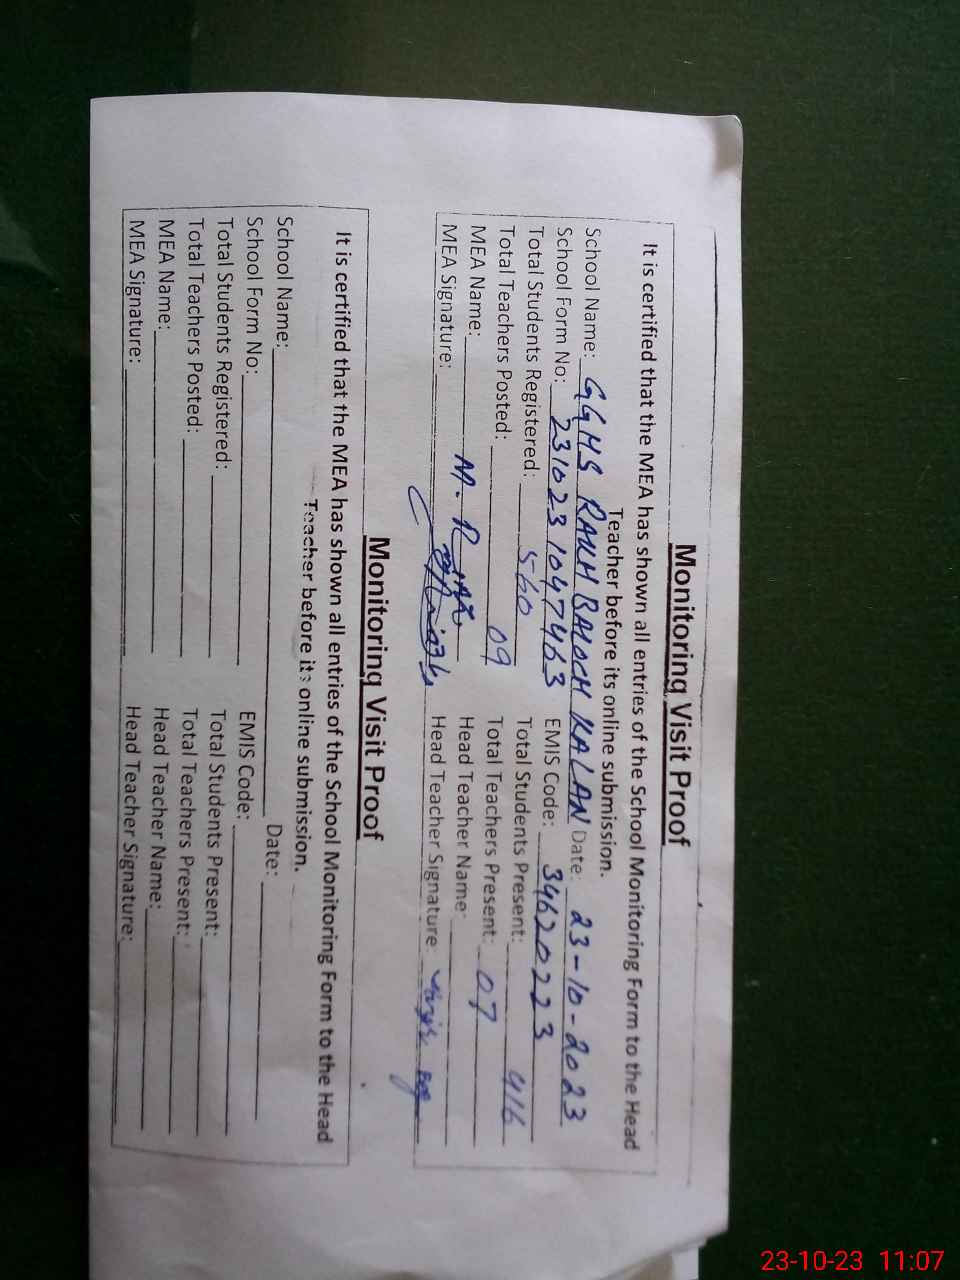 Monitoring Visit Proof
It is certified that the MEA has shown all entries of the School Monitoring Form to the Head
Teacher before its online submission.
School Name: GGHS RAKH BALOCH KALAN Date: 23-10-2023
School Form No: 231023 1047463 EMIS Code: 34620223
Total Students Registered: 560 Total Students Present: 416
Total Teachers Posted: 09 Total Teachers Present: 07
MEA Name: M. Head Teacher Name:
MEA Signature: Head Teacher Signature:
Monitoring Visit Proof
It is certified that the MEA has shown all entries of the School Monitoring Form to the Head
Teacher before its online submission.
School Name: Date:
School Form No: EMIS Code:
Total Students Registered: Total Students Present:
Total Teachers Posted: Total Teachers Present:
MEA Name: Head Teacher Name:
MEA Signature: Head Teacher Signature:
23-10-23 11:07